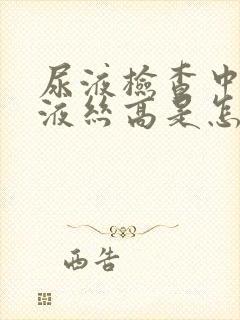 尿液檢查中
液絲高是怎
西告